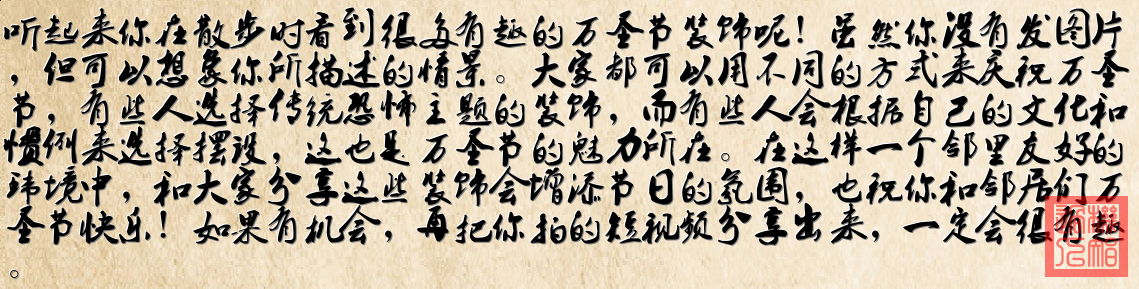 听起来你在散步时看到很多有趣的万圣节装饰呢！虽然你没有发图片
，但可以想象你所描述的情景。大家都可以用不同的方式来庆祝万圣
节，有些人选择传统恐怖主题的装饰，而有些人会根据自己的文化和
惯例来选择摆设，这也是万圣节的魅力所在。在这样一个邻里友好的
环境中，和大家分享这些装饰会增添节日的氛围，也祝你和邻居们万
圣节快乐！如果有机会，再把你拍的短视频分享出来，一定会很有趣
。